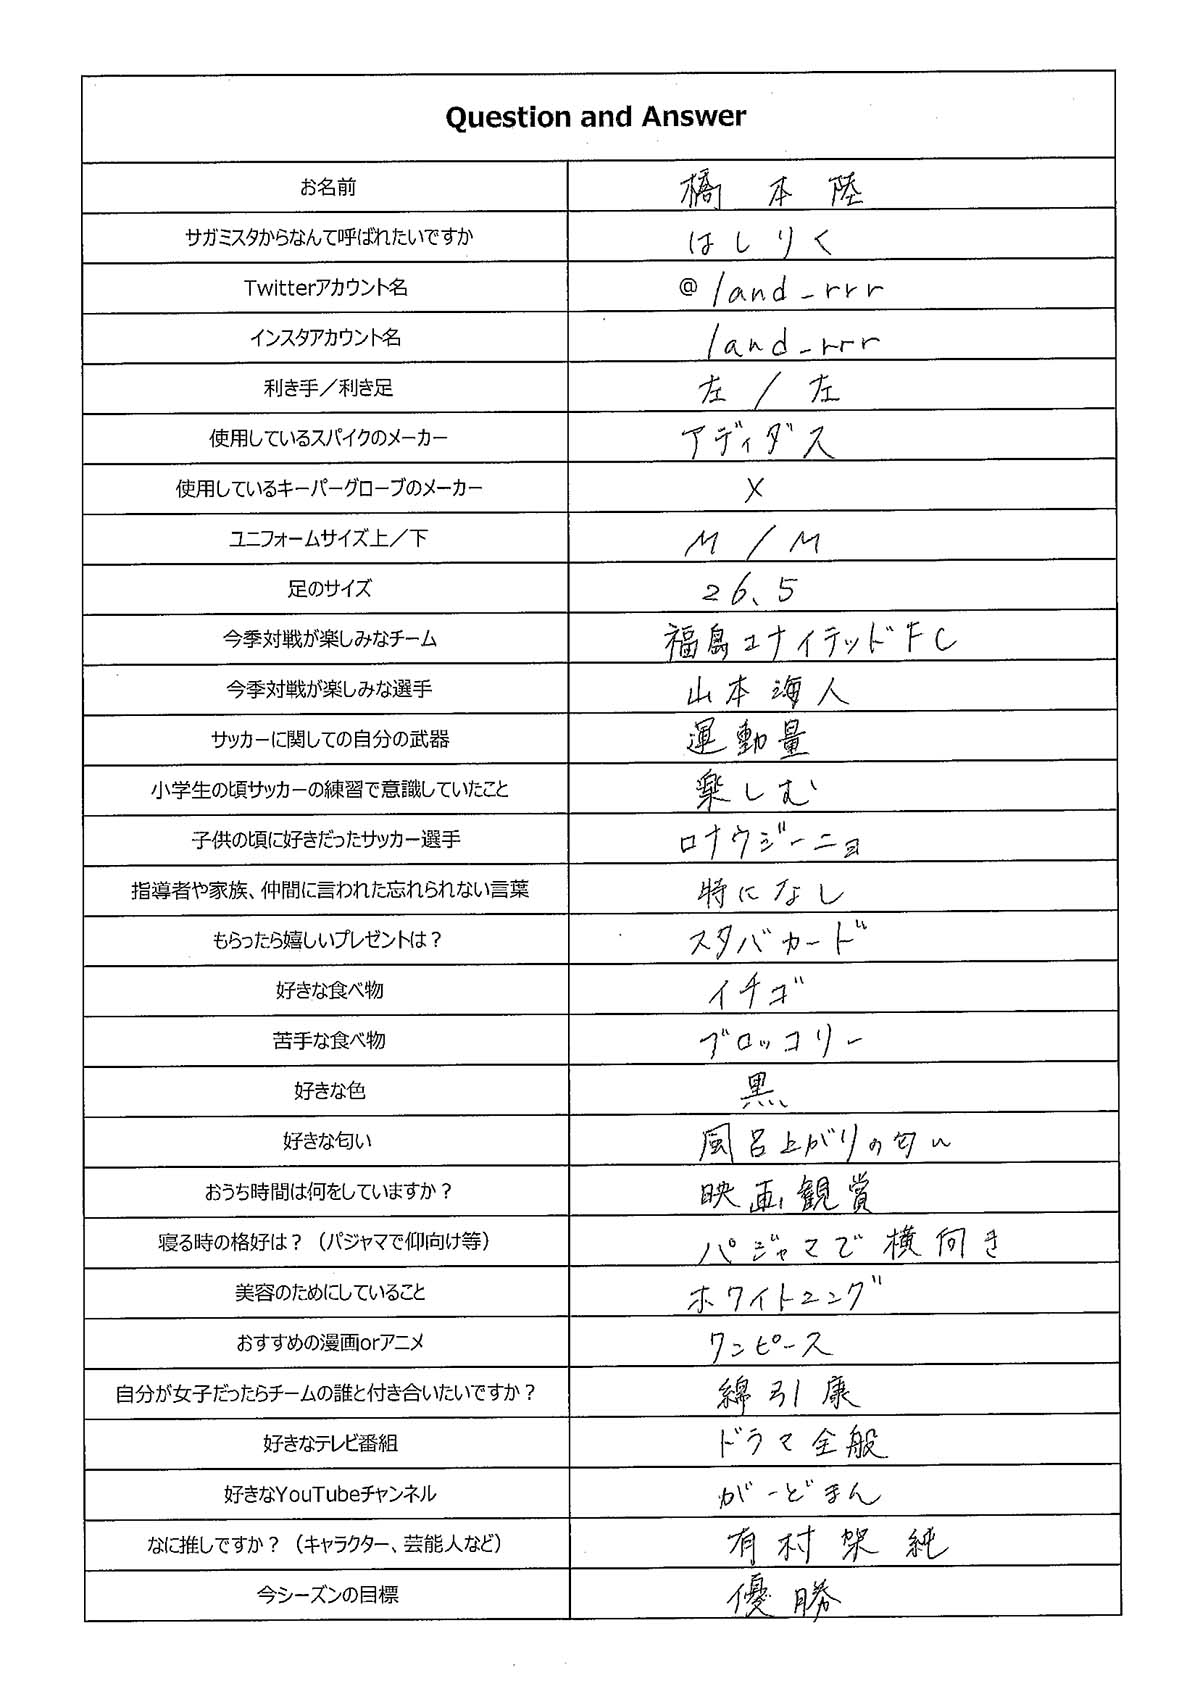 Question and Answer
お名前 橋本陸
サガミスタからなんて呼ばれたいですか はしりく
Twitterアカウント名 @land_rrr
インスタアカウント名 land_rrr
利き手／利き足 左／左
使用しているスパイクのメーカー アディダス
使用しているキーパーグローブのメーカー ×
ユニフォームサイズ上／下 M／M
足のサイズ 26.5
今季対戦が楽しみなチーム 福島ユナイテッドFC
今季対戦が楽しみな選手 山本海人
サッカーに関しての自分の武器 運動量
小学生の頃サッカーの練習で意識していたこと 楽しむ
子供の頃に好きだったサッカー選手 ロナウジーニョ
指導者や家族、仲間に言われた忘れられない言葉 特になし
もらったら嬉しいプレゼントは？ スタバカード
好きな食べ物 イチゴ
苦手な食べ物 ブロッコリー
好きな色 黒
好きな匂い 風呂上がりの匂い
おうち時間は何をしていますか？ 映画観賞
寝る時の格好は？（パジャマで仰向け等） パジャマで横向き
美容のためにしていること ホワイトニング
おすすめの漫画orアニメ ワンピース
自分が女子だったらチームの誰と付き合いたいですか？ 綿引康
好きなテレビ番組 ドラマ全般
好きなYouTubeチャンネル がーどまん
なに推しですか？（キャラクター、芸能人など） 有村架純
今シーズンの目標 優勝